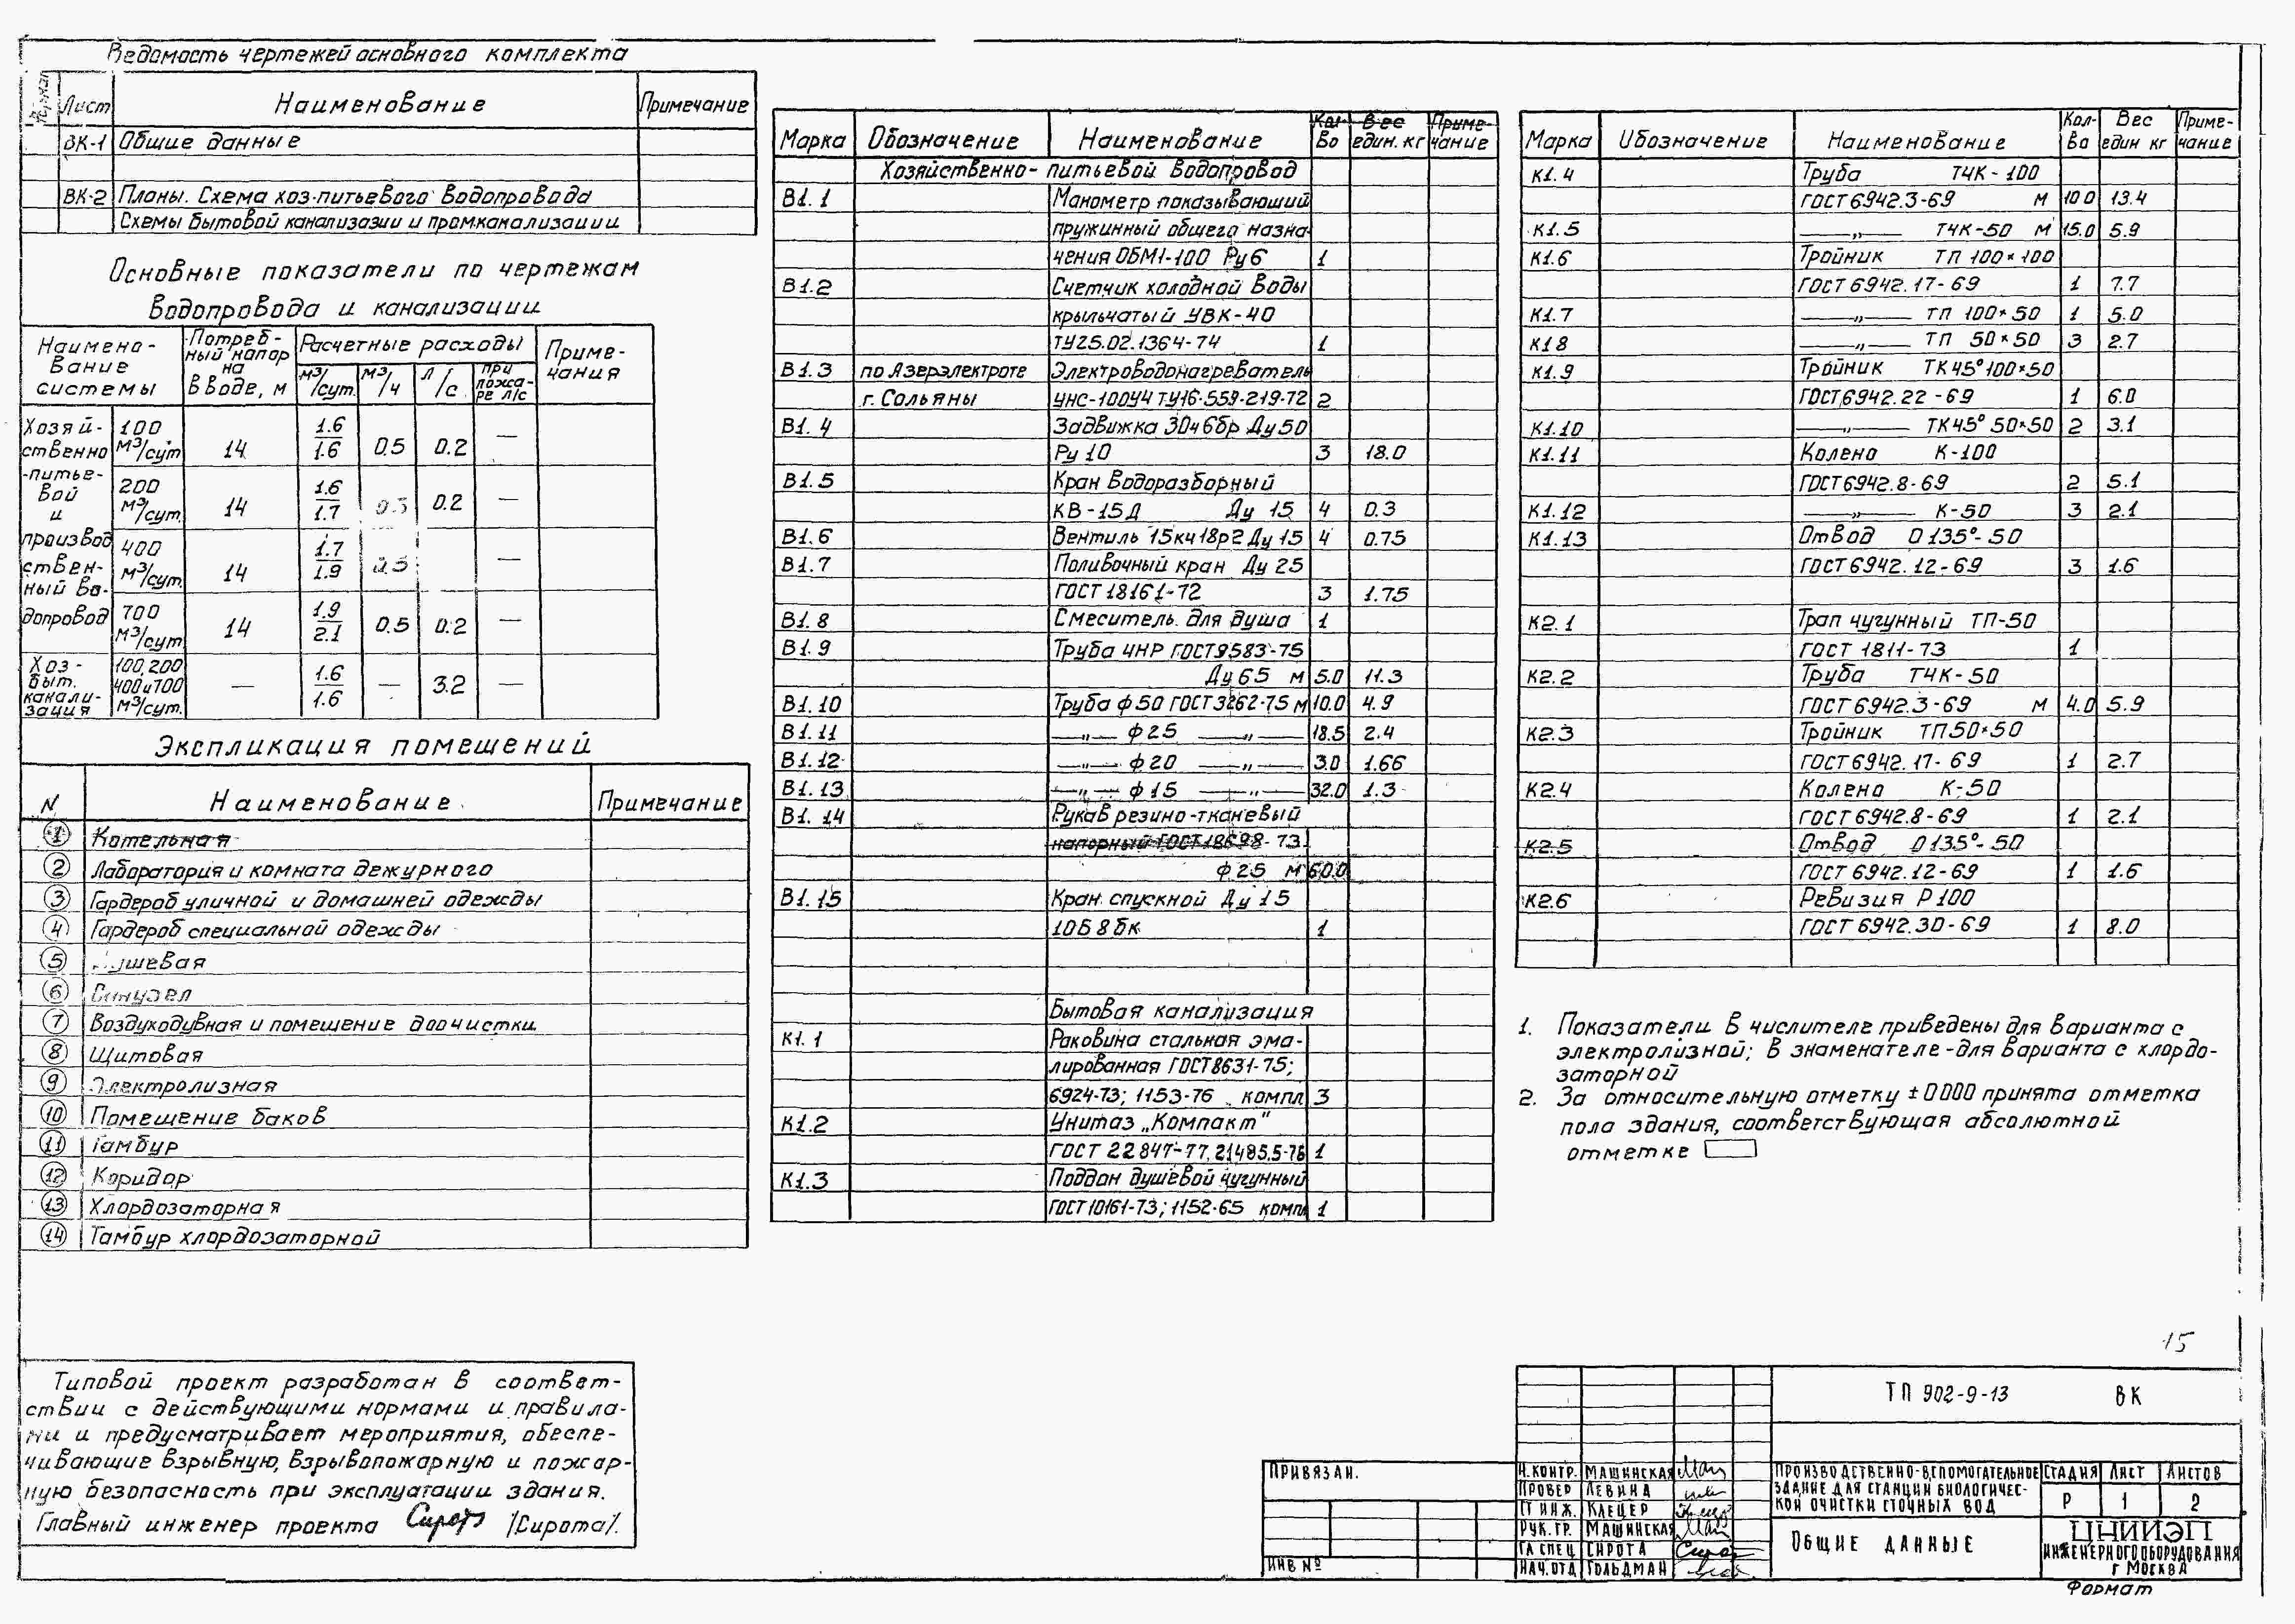 Ведомость чертежей основного комплекта
Лист Наименование Примечание
ВК-1 Общие данные
ВК-2 Планы. Схема хоз-питьевого водопровода
Схемы бытовой канализации и промканализации
Основные показатели по чертежам
водопровода и канализации
Наимено-вание системы Потреб-ный напор на вводе, м Расчетные расходы Приме-чания
м³/сут. м³/ч л/с при пожа-ре л/с
Хозяй-ственно-питье-вой и производ-ствен-ный во-допровод
100 м³/сут 14 1.6/1.6 0.5 0.2 —
200 м³/сут. 14 1.6/1.7 0.2 —
400 м³/сут. 14 1.7/1.9 —
700 м³/сут 14 1.9/2.1 0.5 0.2 —
Хоз-быт. канали-зация 100,200 400и700 м³/сут. — 1.6/1.6 — 3.2 —
Экспликация помещений
N Наименование Примечание
1 Котельная
2 Лаборатория и комната дежурного
3 Гардероб уличной и домашней одежды
4 Гардероб специальной одежды
5 Душевая
6 Санузел
7 Воздуходувная и помещение доочистки
8 Щитовая
9 Электролизная
10 Помещение баков
11 Тамбур
12 Коридор
13 Хлордозаторная
14 Тамбур хлордозаторной
Типовой проект разработан в соответ-
ствии с действующими нормами и правила-
ми и предусматривает мероприятия, обеспе-
чивающие взрывную, взрывопожарную и пожар-
ную безопасность при эксплуатации здания.
Главный инженер проекта /Сирота/.
Марка Обозначение Наименование Кол-во Вес един. кг Приме-чание
Хозяйственно-питьевой водопровод
В1.1 Манометр показывающий
пружинный общего назна-
чения ОБМ1-100 Ру6 1
В1.2 Счетчик холодной воды
крыльчатый УВК-40
ТУ25.02.1364-74 1
В1.3 по Азерэлектроте Электроводонагреватель
г. Сольяны УНС-100У4 ТУ16-559-219-72 2
В1.4 Задвижка 30ч6бр Ду50
Ру 10 3 18.0
В1.5 Кран водоразборный
КВ-15Д Ду 15 4 0.3
В1.6 Вентиль 15кч18р2 Ду 15 4 0.75
В1.7 Поливочный кран Ду 25
ГОСТ 18161-72 3 1.75
В1.8 Смеситель для душа 1
В1.9 Труба ЧНР ГОСТ9583-75
Ду 65 м 5.0 11.3
В1.10 Труба ф50 ГОСТ3262-75 м 10.0 4.9
В1.11 —„— ф25 —„— 18.5 2.4
В1.12 —„— ф20 —„— 3.0 1.66
В1.13 —„— ф15 —„— 32.0 1.3
В1.14 Рукав резино-тканевый
напорный ГОСТ18698-73
ф25 м 60.0
В1.15 Кран спускной Ду 15
10Б8бк 1
Бытовая канализация
К1.1 Раковина стальная эма-
лированная ГОСТ8631-75;
6924-73; 1153-76 компл 3
К1.2 Унитаз „Компакт"
ГОСТ 22847-77, 21485.5-76 1
К1.3 Поддон душевой чугунный
ГОСТ10161-73; 1152-65 компл 1
Марка Обозначение Наименование Кол-во Вес един кг Приме-чание
К1.4 Труба ТЧК-100
ГОСТ6942.3-69 м 10.0 13.4
К1.5 —„— ТЧК-50 м 15.0 5.9
К1.6 Тройник ТП 100×100
ГОСТ6942.17-69 1 7.7
К1.7 —„— ТП 100×50 1 5.0
К1.8 —„— ТП 50×50 3 2.7
К1.9 Тройник ТК45°100×50
ГОСТ6942.22-69 1 6.0
К1.10 —„— ТК45° 50×50 2 3.1
К1.11 Колено К-100
ГОСТ6942.8-69 2 5.1
К1.12 —„— К-50 3 2.1
К1.13 Отвод О135°-50
ГОСТ6942.12-69 3 1.6
К2.1 Трап чугунный ТП-50
ГОСТ 1811-73 1
К2.2 Труба ТЧК-50
ГОСТ6942.3-69 м 4.0 5.9
К2.3 Тройник ТП50×50
ГОСТ6942.17-69 1 2.7
К2.4 Колено К-50
ГОСТ6942.8-69 1 2.1
К2.5 Отвод О135°-50
ГОСТ6942.12-69 1 1.6
К2.6 Ревизия Р100
ГОСТ6942.30-69 1 8.0
1. Показатели в числителе приведены для варианта с
электролизной; в знаменателе-для варианта с хлордо-
заторной
2. За относительную отметку ±0000 принята отметка
пола здания, соответствующая абсолютной
отметке
15
Привязан.
Инв №
Н.контр. Машинская
Провер Левина
Гл инж. Клецер
Рук. гр. Машинская
Гл спец Сирота
Нач.отд Гольдман
ТП 902-9-13 ВК
Производственно-вспомогательное
здание для станции биологичес-
кой очистки сточных вод
Стадия Лист Листов
Р 1 2
Общие данные
ЦНИИЭП
инженерного оборудования
г Москва
Формат